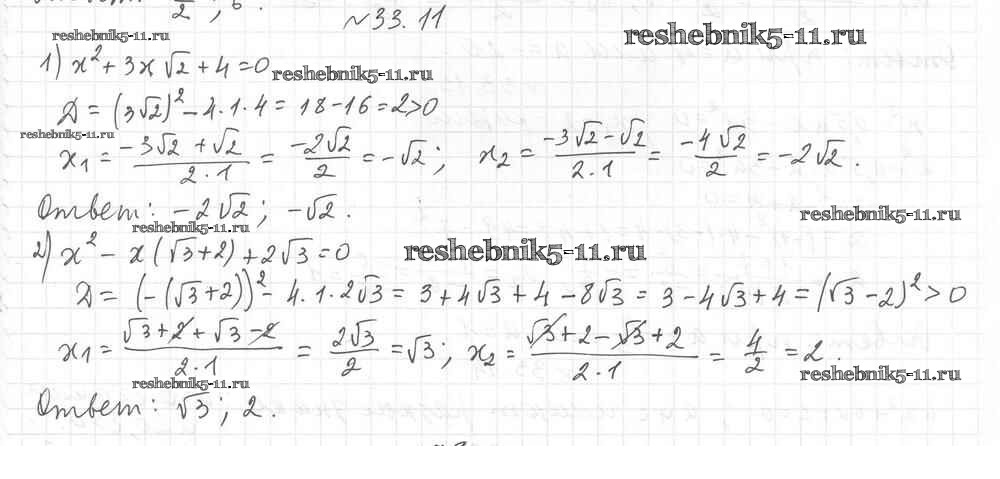 №33.11
reshebnik5-11.ru
reshebnik5-11.ru
1) x² + 3x√2 + 4 = 0
reshebnik5-11.ru
Д = (3√2)² - 4·1·4 = 18 - 16 = 2 > 0
reshebnik5-11.ru
x₁ = (-3√2 + √2)/(2·1) = (-2√2)/2 = -√2; x₂ = (-3√2 - √2)/(2·1) = (-4√2)/2 = -2√2.
Ответ: -2√2; -√2.
reshebnik5-11.ru
reshebnik5-11.ru
2) x² - x(√3+2) + 2√3 = 0
reshebnik5-11.ru
Д = (-(√3+2))² - 4·1·2√3 = 3 + 4√3 + 4 - 8√3 = 3 - 4√3 + 4 = (√3 - 2)² > 0
x₁ = (√3 + 2 + √3 - 2)/(2·1) = (2√3)/2 = √3; x₂ = (√3 + 2 - √3 + 2)/(2·1) = 4/2 = 2.
reshebnik5-11.ru
reshebnik5-11.ru
Ответ: √3; 2.